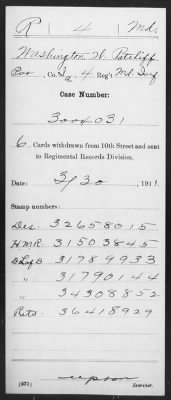 R 4 Md.
Washington W. Ratcliff
Pvt, Co. A, 4 Reg't Md. Inf
Case Number:
3004031
6 Cards withdrawn from 10th Street and sent
to Regimental Records Division.
Date: 3/30, 1911.
Stamp numbers:
Des. 32658015
H.M.R. 31503845
31789933
" 31790144
" 34308852
Retd. 36418929
(671) upson
Searcher.